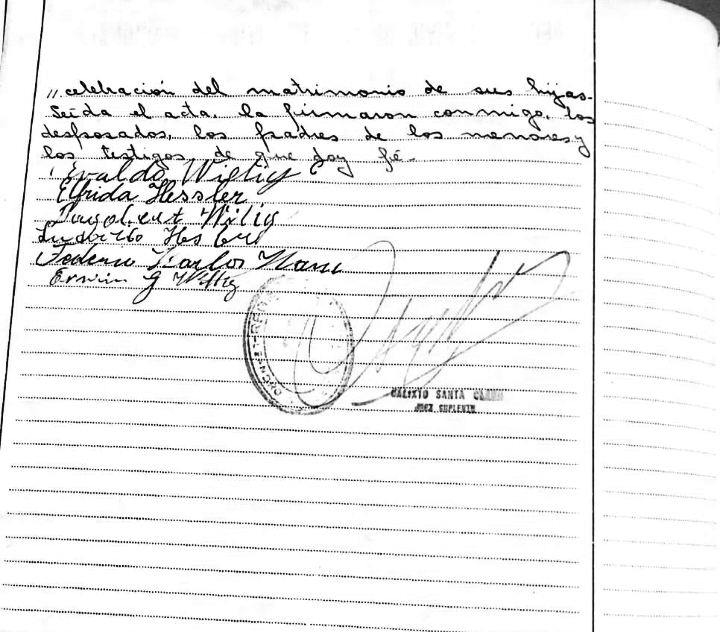 ,, celebración del matrimonio de sus hijas.
Leída el acta, la firmaron conmigo, los
desposados, los padres de los menores y
los testigos de que doy fé.
Evaldo Willig
Elfrida Hessler
Willig
Federico Carlos
Erwin G Willig
CALIXTO SANTA
JUEZ SUPLENTE